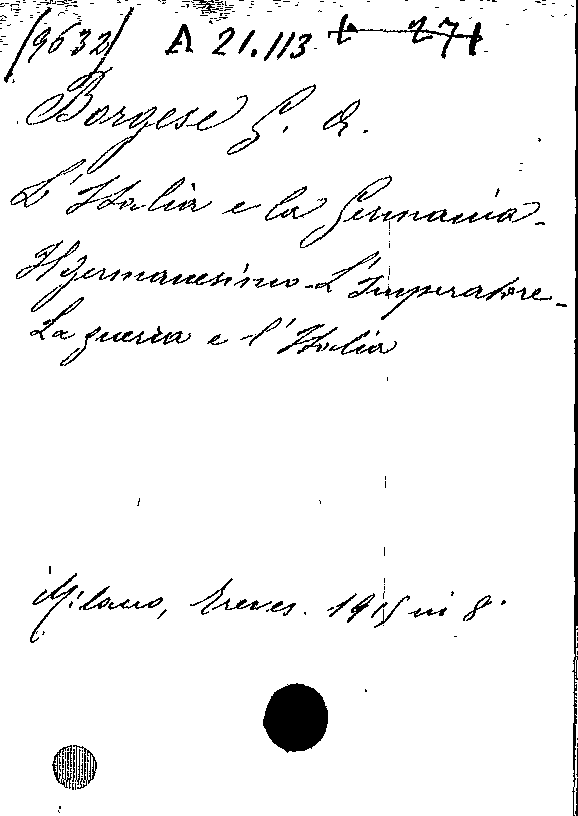 (9632) A 21.113
Borgese G. A.
L'Italia e la Germania -
Il germanesimo - L'Imperatore -
La guerra e l'Italia
Milano, Treves. 1915 in 8°